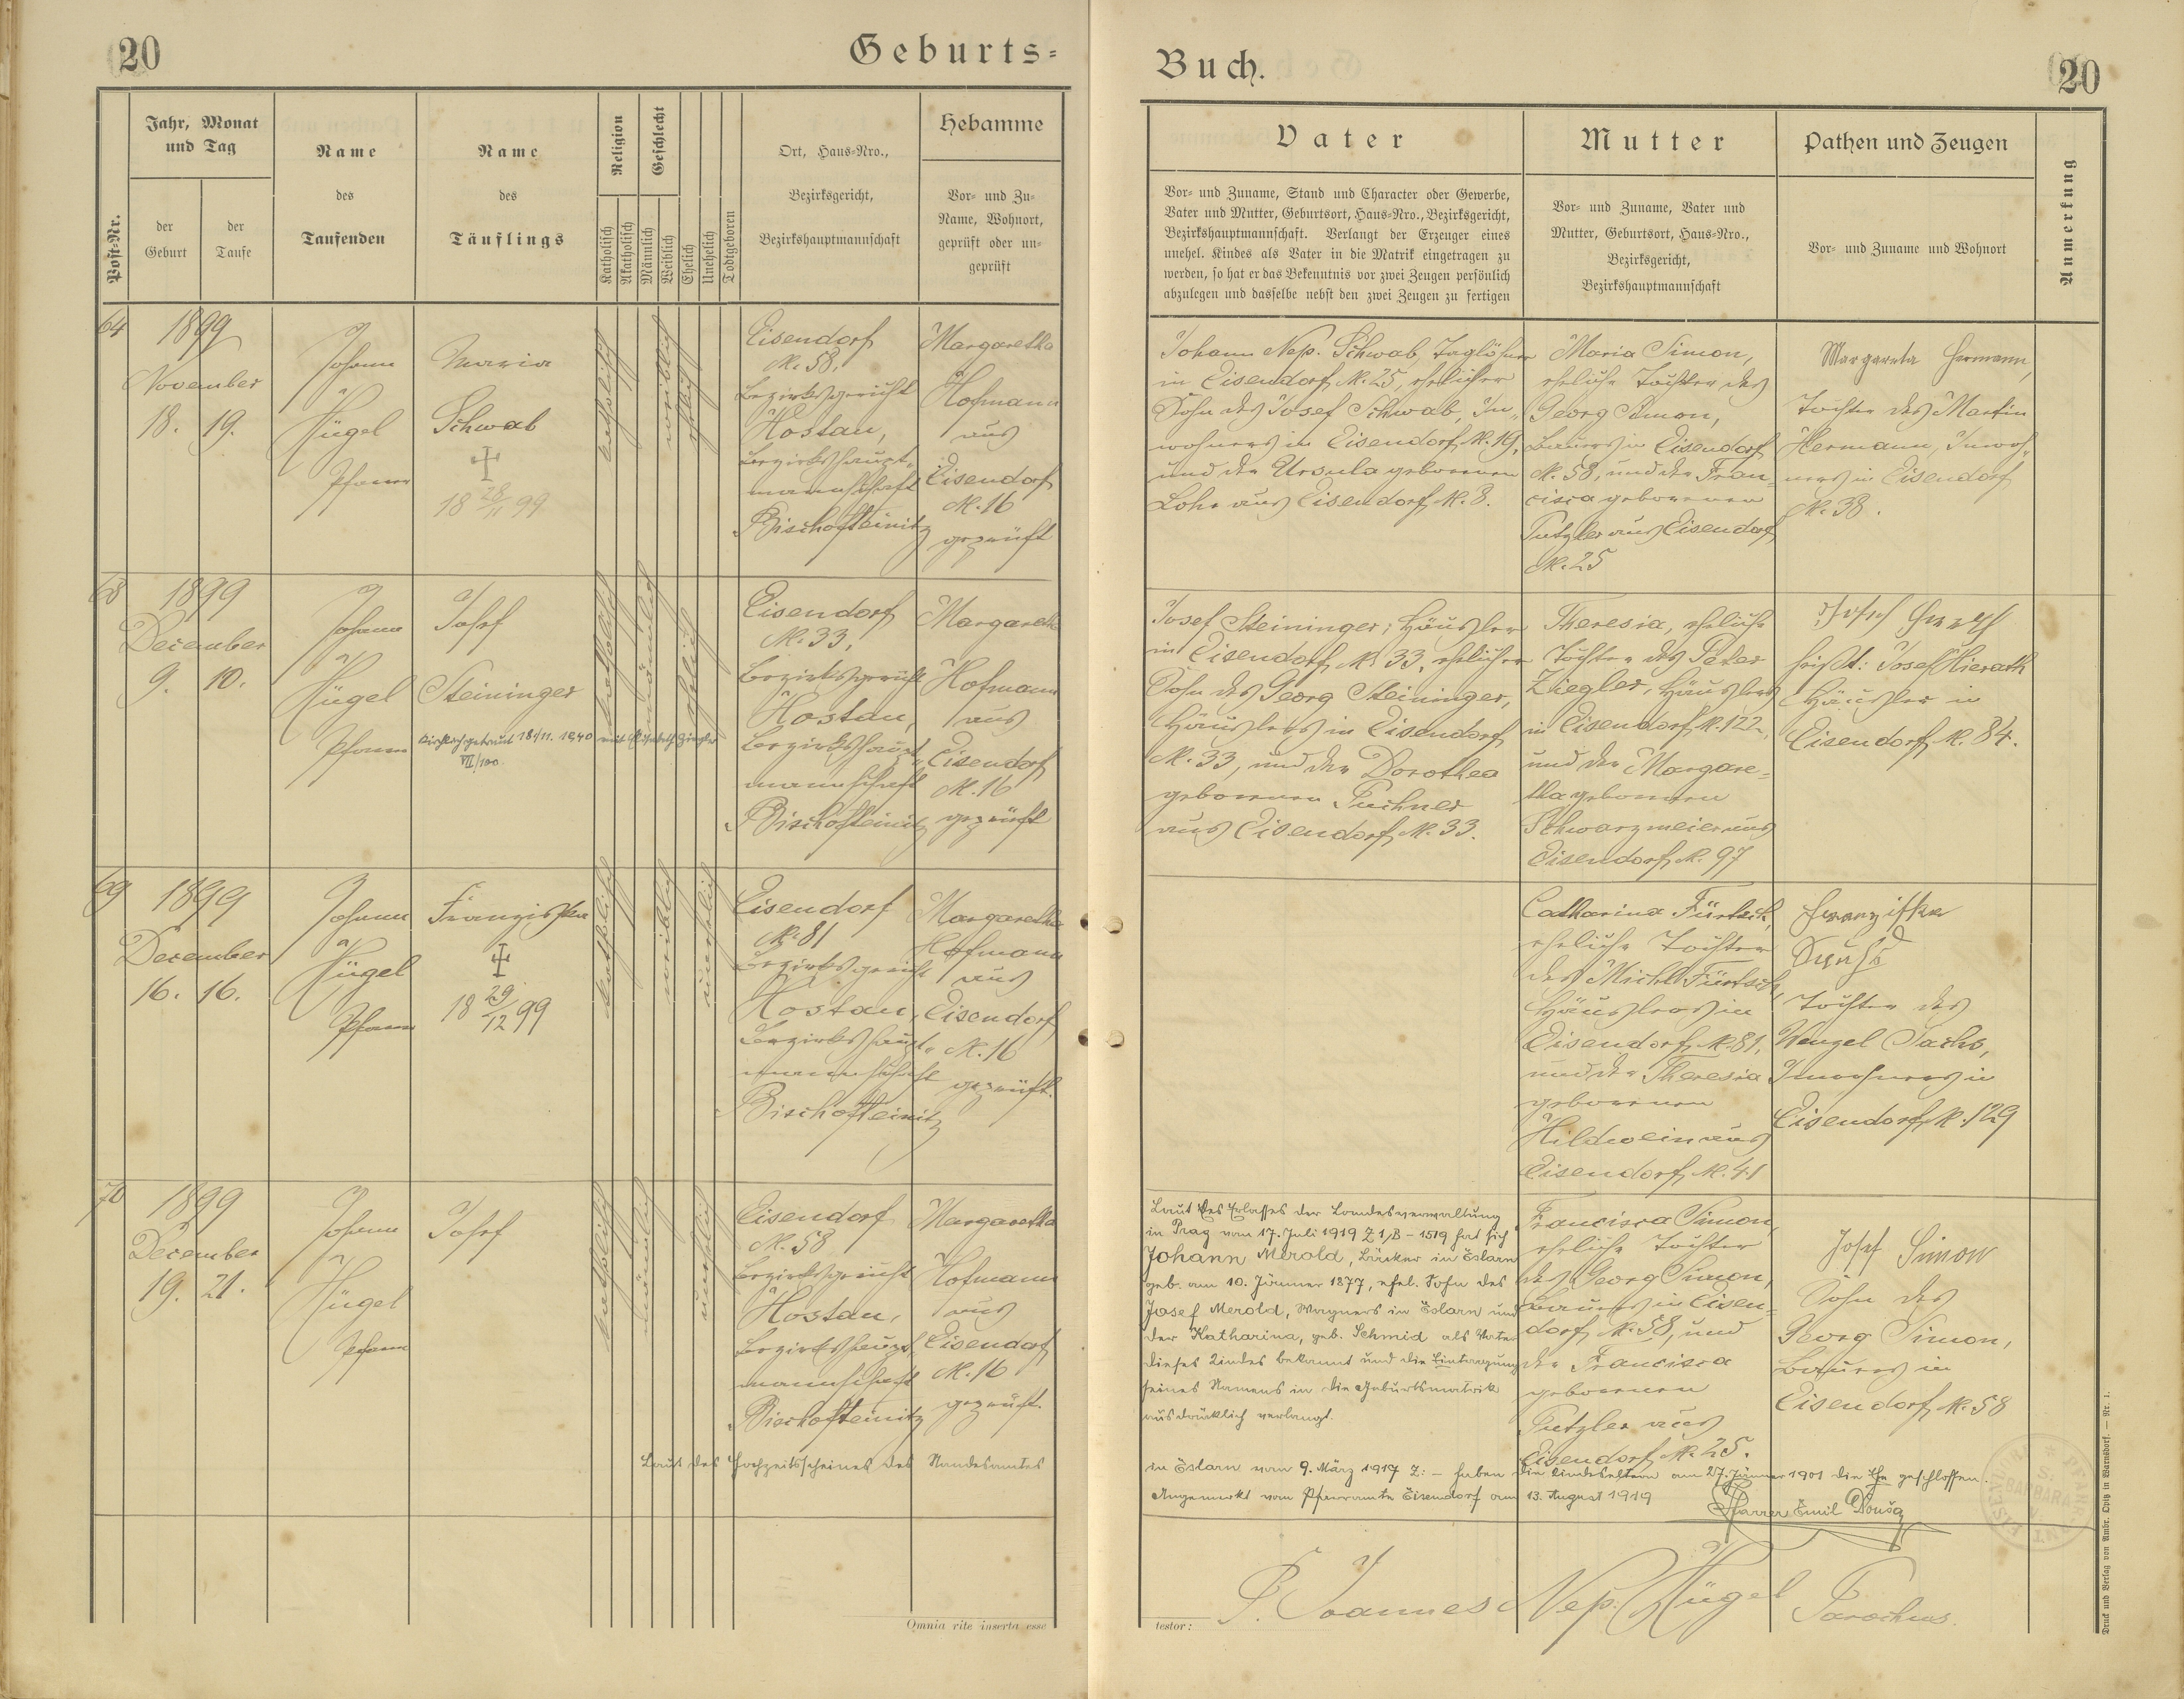 20
Geburts-
Buch.
20
Post-Nr.
Jahr, Monat
und Tag
der
Geburt
der
Taufe
Name
des
Taufenden
Name
des
Täuflings
Religion
Katholisch
Akatholisch
Geschlecht
Männlich
Weiblich
Ehelich
Unehelich
Todtgeboren
Ort, Haus-Nro.,
Bezirksgericht,
Bezirkshauptmannschaft
Hebamme
Vor- und Zu-
Name, Wohnort,
geprüft oder un-
geprüft
Vater
Vor- und Zuname, Stand und Character oder Gewerbe,
Vater und Mutter, Geburtsort, Haus-Nro., Bezirksgericht,
Bezirkshauptmannschaft. Verlangt der Erzeuger eines
unehel. Kindes als Vater in die Matrik eingetragen zu
werden, so hat er das Bekenntnis vor zwei Zeugen persönlich
abzulegen und dasselbe nebst den zwei Zeugen zu fertigen
Mutter
Vor- und Zuname, Vater und
Mutter, Geburtsort, Haus-Nro.,
Bezirksgericht,
Bezirkshauptmannschaft
Pathen und Zeugen
Vor- und Zuname und Wohnort
Anmerkung
1899
November
18. 19.
Johann
Hügel
Pfarrer
Maria
Schwab
18 28/11 99
katholisch
weiblich
ehelich
Eisendorf
N. 58,
Bezirksgericht
Hostau,
Bezirkshaupt-
mannschaft
Bischofteinitz
Margaretha
Hofmann
aus
Eisendorf
N. 16
geprüft
Johann Nep. Schwab, Taglöhner
in Eisendorf N. 25, ehelicher
Sohn des Josef Schwab, In-
wohners in Eisendorf N. 19,
und der Ursula geborenen
Lohr aus Eisendorf N. 8.
Maria Simon,
eheliche Tochter des
Georg Simon,
Bauers in Eisendorf
N. 58, und der Fran-
cisca geborenen
Putzler aus Eisendorf
N. 25
Margareta Hermann,
Tochter des Martin
Hermann, Inwoh-
ners in Eisendorf
N. 38.
68
1899
December
9. 10.
Johann
Hügel
Pfarrer
Josef
Steininger
kirchlich getraut 18/11. 1940 mit Elisabeth Ziegler
VII/100
katholisch
männlich
ehelich
Eisendorf
N. 33,
Bezirksgericht
Hostau,
Bezirkshaupt-
mannschaft
Bischofteinitz
Margaretha
Hofmann
aus
Eisendorf
N. 16
geprüft
Josef Steininger, Häusler
in Eisendorf N. 33, ehelicher
Sohn des Georg Steininger,
Häuslers in Eisendorf
N. 33, und der Dorothea
geborenen Puchner
aus Eisendorf N. 33.
Theresia, eheliche
Tochter des Peter
Ziegler, Häuslers
in Eisendorf N. 122,
und der Margare-
tha geborenen
Schwarzmeier aus
Eisendorf N. 97
Josef
heißt: Josef Hierath
Häusler in
Eisendorf N. 84.
69
1899
December
16. 16.
Johann
Hügel
Pfarrer
Franziska
18 29/12 99
katholisch
weiblich
unehelich
Eisendorf
N. 81
Bezirksgericht
Hostau,
Bezirkshaupt-
mannschaft
Bischofteinitz
Margaretha
Hofmann
aus
Eisendorf
N. 16
geprüft.
Catharina
eheliche Tochter
des Michl
Häuslers in
Eisendorf N. 81,
und der Theresia
geborenen
Hildwein aus
Eisendorf N. 41
Franziska
Sachs
Tochter des
Wenzel Sachs,
Inwohners in
Eisendorf N. 129
70
1899
December
19. 21.
Johann
Hügel
Pfarrer
Josef
katholisch
männlich
unehelich
Eisendorf
N. 58
Bezirksgericht
Hostau,
Bezirkshaupt-
mannschaft
Bischofteinitz
Margaretha
Hofmann
aus
Eisendorf
N. 16
geprüft.
Laut des Erlasses der Landesverwaltung
in Prag vom 17. Juli 1919 Z 1/B - 1519 hat sich
Johann Merold, Bäcker in Eslarn
geb. am 10. Jänner 1877, ehel. Sohn des
Josef Merold, Wagners in Eslarn und
der Katharina, geb. Schmid als Vater
dieses Kindes bekannt und die Eintragung
seines Namens in die Geburtsmatrik
ausdrücklich verlangt.
Francisca Simon,
eheliche Tochter
des Georg Simon,
Bauers in Eisen-
dorf N. 58, und
der Francisca
geborenen
Putzler aus
Eisendorf N. 25.
Josef Simon
Sohn des
Georg Simon,
Bauers in
Eisendorf N. 58
Laut des Hochzeitsscheines des Standesamtes
in Eslarn vom 9. März 1917 Z: - haben die Kindeseltern am 27. Jänner 1901 die Ehe geschlossen.
Angemerkt vom Pfarramte Eisendorf am 13. August 1919
Pfarrer Emil Douša
Omnia rite inserta esse
testor:
P. Joannes Nep. Hügel Parochus.
Druck und Verlag von Ambr. Opitz in Warnsdorf. — Nr. 1.